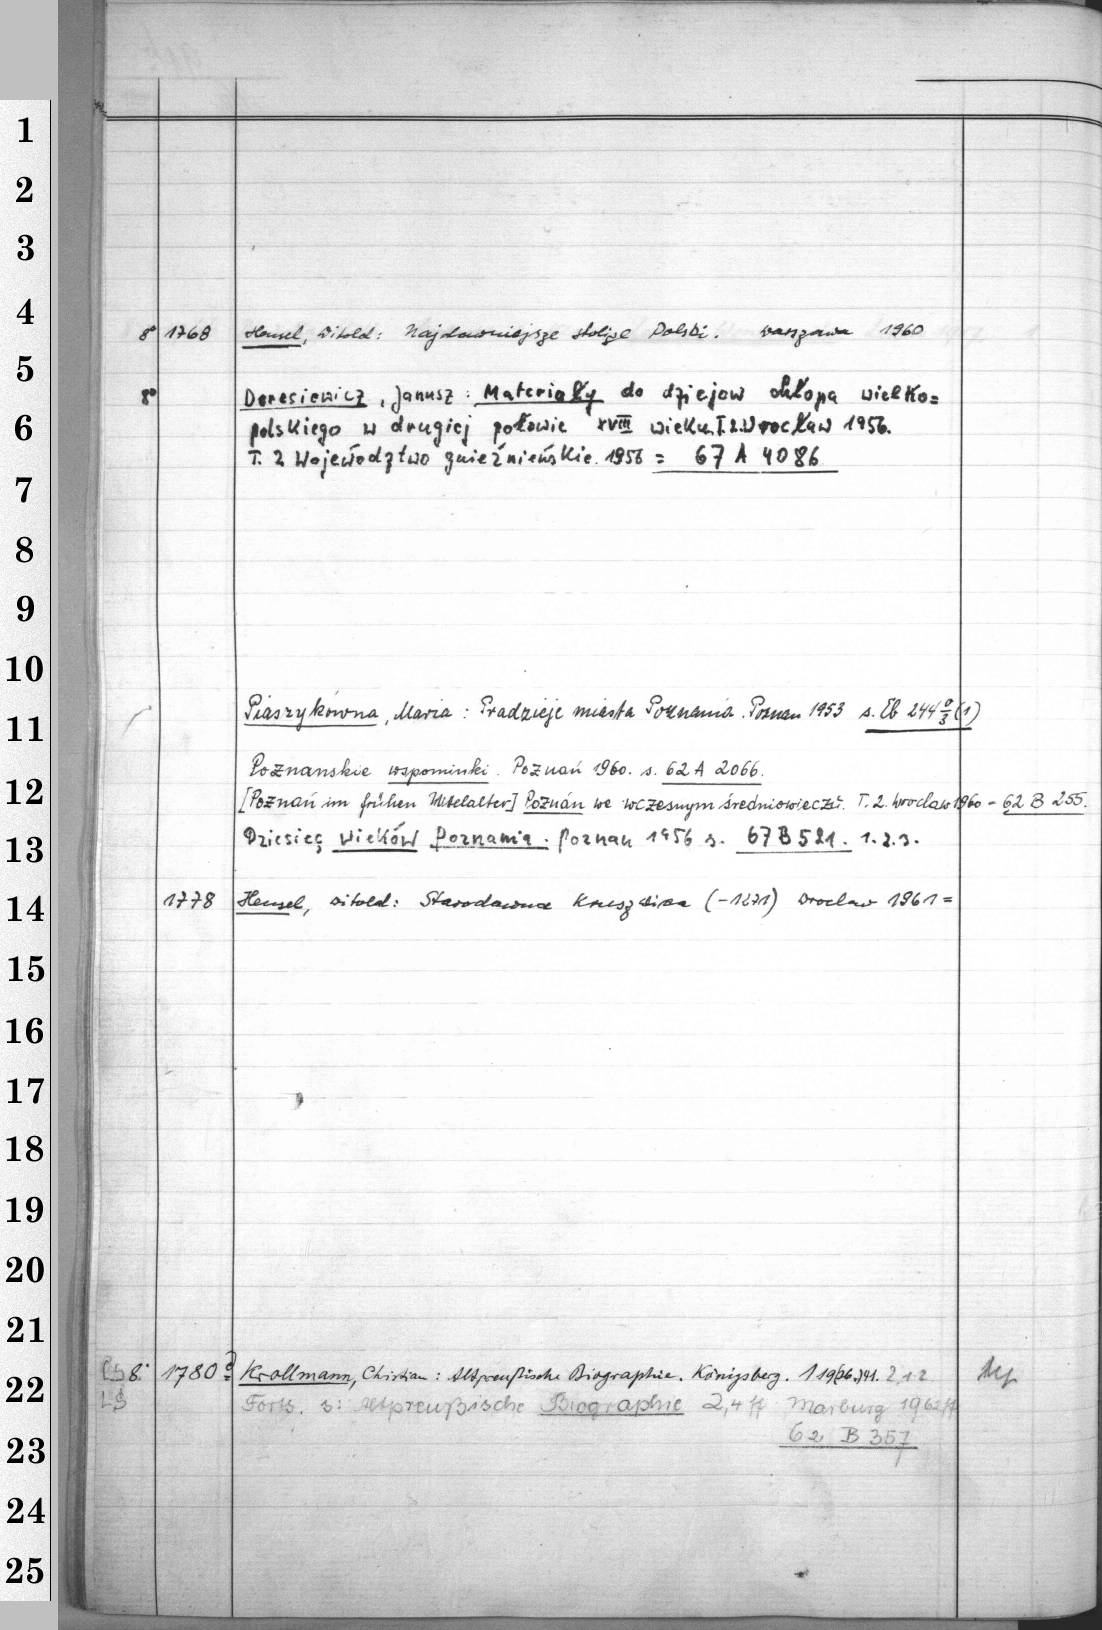 1
2
3
4
8° 1768 Hensel, Witold: Najdawniejsze stolice Polski. Warszawa 1960
5
8° Deresiewicz, Janusz: Materiały do dziejow chłopa wielko=
6
polskiego w drugiej połowie XVIII wieku. T. 2. Wrocław 1956.
T. 2 Województwo gnieźnieńskie. 1956 = 67 A 4086
7
8
9
10
Piaszykówna, Maria: Pradzieje miasta Poznania. Poznan 1953 s. Eb 244 (1)
11
Poznanskie wspominki. Poznań 1960. s. 62 A 2066.
12
[Poznań im frühen Mittelalter] Poznań we wczesnym średniowieczu. T. 2. Wroclaw 1960 - 62 B 255.
13
Dziesięę wieków Poznania. Poznan 1956 s. 67 B 521. 1.2.3.
14
1778 Hensel, Witold: Starodawna Kruszwica (-1271) Wroclaw 1961 =
15
16
17
18
19
20
21
8° 1780 Krollmann, Christian: Altpreußische Biographie. Königsberg. 1 19(36.)41. 2,1.2
22
LS Forts. s: Altpreußische Biographie 2,4 ff Marburg 1962 ff
23
62 B 357
24
25